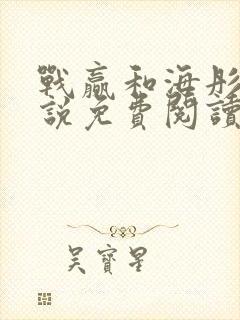 戰贏和海彤
說免費閱讀
吳寶星